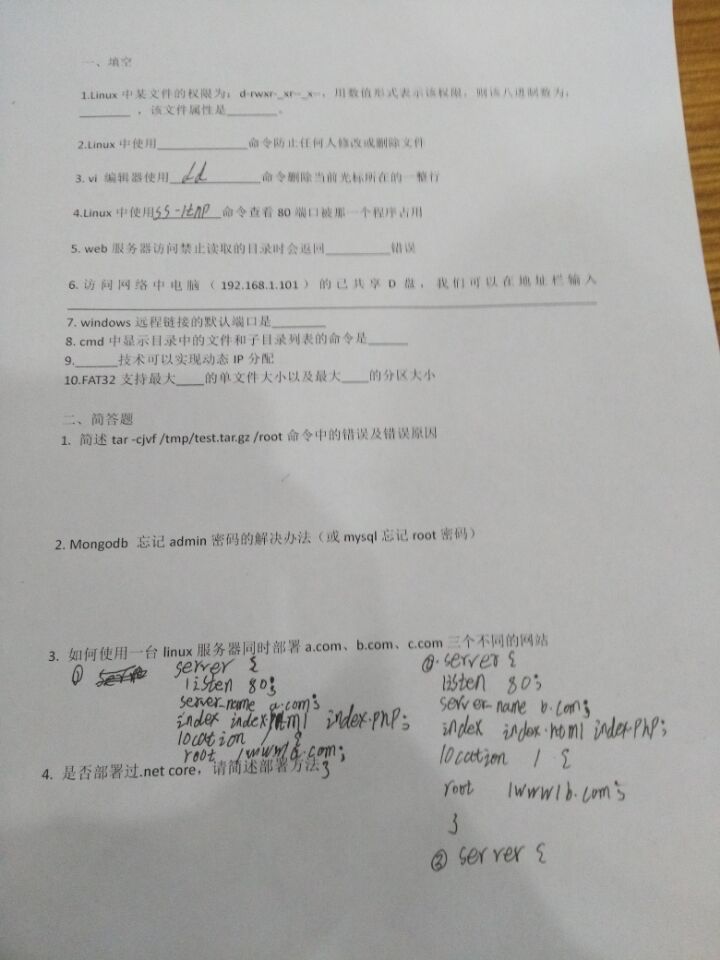 一、填空
1.Linux 中某文件的权限为：d-rwxr-_xr--_x--，用数值形式表示该权限，则该八进制数为：
________ ，该文件属性是________。
2.Linux 中使用______________命令防止任何人修改或删除文件
3. vi 编辑器使用__dd________命令删除当前光标所在的一整行
4.Linux 中使用ss -ltnp__命令查看 80 端口被那一个程序占用
5. web 服务器访问禁止读取的目录时会返回__________错误
6. 访问网络中电脑（192.168.1.101）的已共享 D 盘，我们可以在地址栏输入
7. windows 远程链接的默认端口是________
8. cmd 中显示目录中的文件和子目录列表的命令是______
9.______技术可以实现动态 IP 分配
10.FAT32 支持最大____的单文件大小以及最大____的分区大小
二、简答题
1. 简述 tar -cjvf /tmp/test.tar.gz /root 命令中的错误及错误原因
2. Mongodb 忘记 admin 密码的解决办法（或 mysql 忘记 root 密码）
3. 如何使用一台 linux 服务器同时部署 a.com、b.com、c.com 三个不同的网站
① server {
listen 80;
server_name a.com;
index index.html index.php;
location / {
root /www/a.com;
}
②. server {
listen 80;
server_name b.com;
index index.html index.php;
location / {
root /www/b.com;
}
③ server {
4. 是否部署过.net core，请简述部署方法